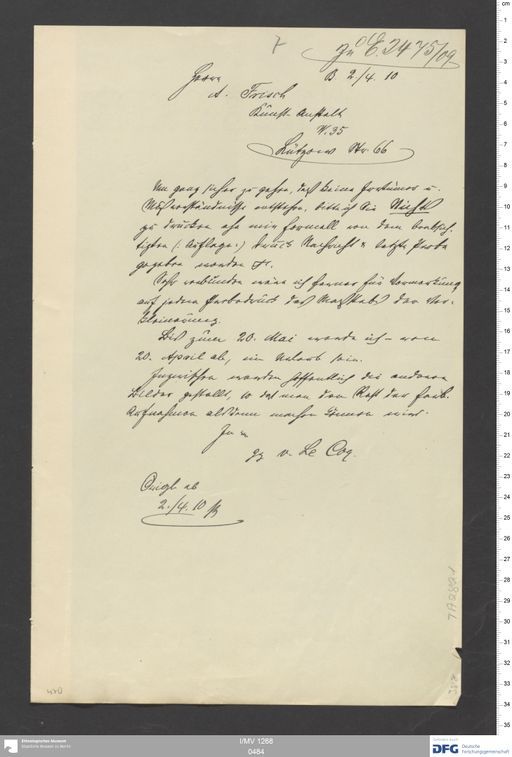 7
Zu E. 2475/09
B 2/4. 10
Herrn
A. Frisch
Kunst Anstalt
W. 35
Lützow Str 66
Um ganz sicher zu gehen, daß keine Irrtümer u.
Mißverständnisse entstehen, bitte ich Sie Nichts
zu drucken ehe mir formell von dem
(: Auflage :) Nachricht & letzte Probe
gegeben worden ist.
Sehr verbunden wäre ich ferner für Vermerkung
auf jedem Probedruck des Maßstabes der Ver-
kleinerung.
Bis zum 20. Mai werde ich – vom
20. April ab, im Urlaub sein.
Inzwischen werden hoffentlich die anderen
Bilder gestellt, so daß man den Rest der Farb.
Aufnahmen alsdann machen können wird.
gz v. Le Coq.
Orig. ab
2./4. 10
Ethnologisches Museum
Staatliche Museen zu Berlin
I/MV 1268
0484
DFG Deutsche
Forschungsgemeinschaft